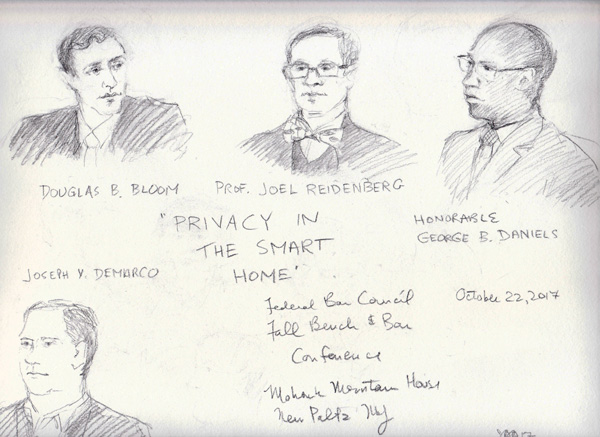 DOUGLAS B. BLOOM
PROF. JOEL REIDENBERG
HONORABLE
GEORGE B. DANIELS
"PRIVACY IN
THE SMART
HOME"
JOSEPH V. DEMARCO
October 22, 2017
Federal Bar Council
Fall Bench & Bar
Conference
Mohonk Mountain House
New Paltz NY